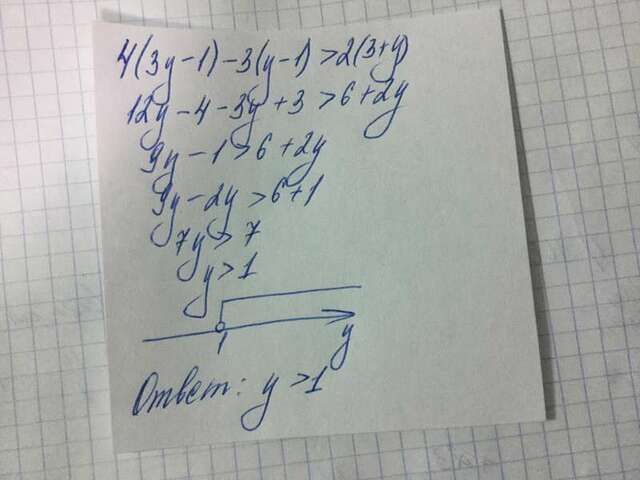 4(3y-1)-3(y-1)>2(3+y)
12y-4-3y+3>6+2y
9y-1>6+2y
9y-2y>6+1
7y>7
y>1
1 y
Ответ: y>1